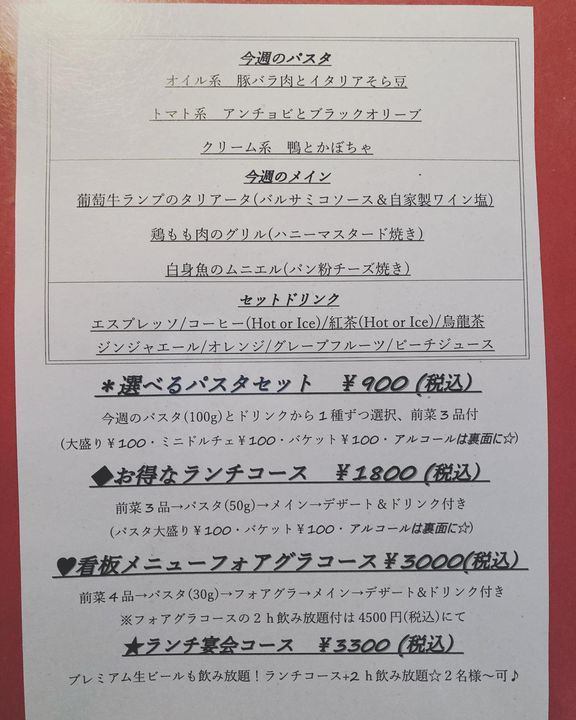 今週のパスタ
オイル系　豚バラ肉とイタリアそら豆
トマト系　アンチョビとブラックオリーブ
クリーム系　鴨とかぼちゃ
今週のメイン
葡萄牛ランプのタリアータ(バルサミコソース＆自家製ワイン塩)
鶏もも肉のグリル(ハニーマスタード焼き)
白身魚のムニエル(パン粉チーズ焼き)
セットドリンク
エスプレッソ/コーヒー(Hot or Ice)/紅茶(Hot or Ice)/烏龍茶
ジンジャエール/オレンジ/グレープフルーツ/ピーチジュース
＊選べるパスタセット　￥900 (税込)
今週のパスタ(100g)とドリンクから１種ずつ選択、前菜３品付
(大盛り￥100・ミニドルチェ￥100・バケット￥100・アルコールは裏面に☆)
◆お得なランチコース　￥1800 (税込)
前菜３品→パスタ(50g)→メイン→デザート＆ドリンク付き
(パスタ大盛り￥100・バケット￥100・アルコールは裏面に☆)
♥看板メニューフォアグラコース￥3000(税込)
前菜４品→パスタ(30g)→フォアグラ→メイン→デザート&ドリンク付き
※フォアグラコースの２ｈ飲み放題付は 4500 円(税込)にて
★ランチ宴会コース　￥3300 (税込)
プレミアム生ビールも飲み放題！ランチコース+2ｈ飲み放題☆２名様～可♪